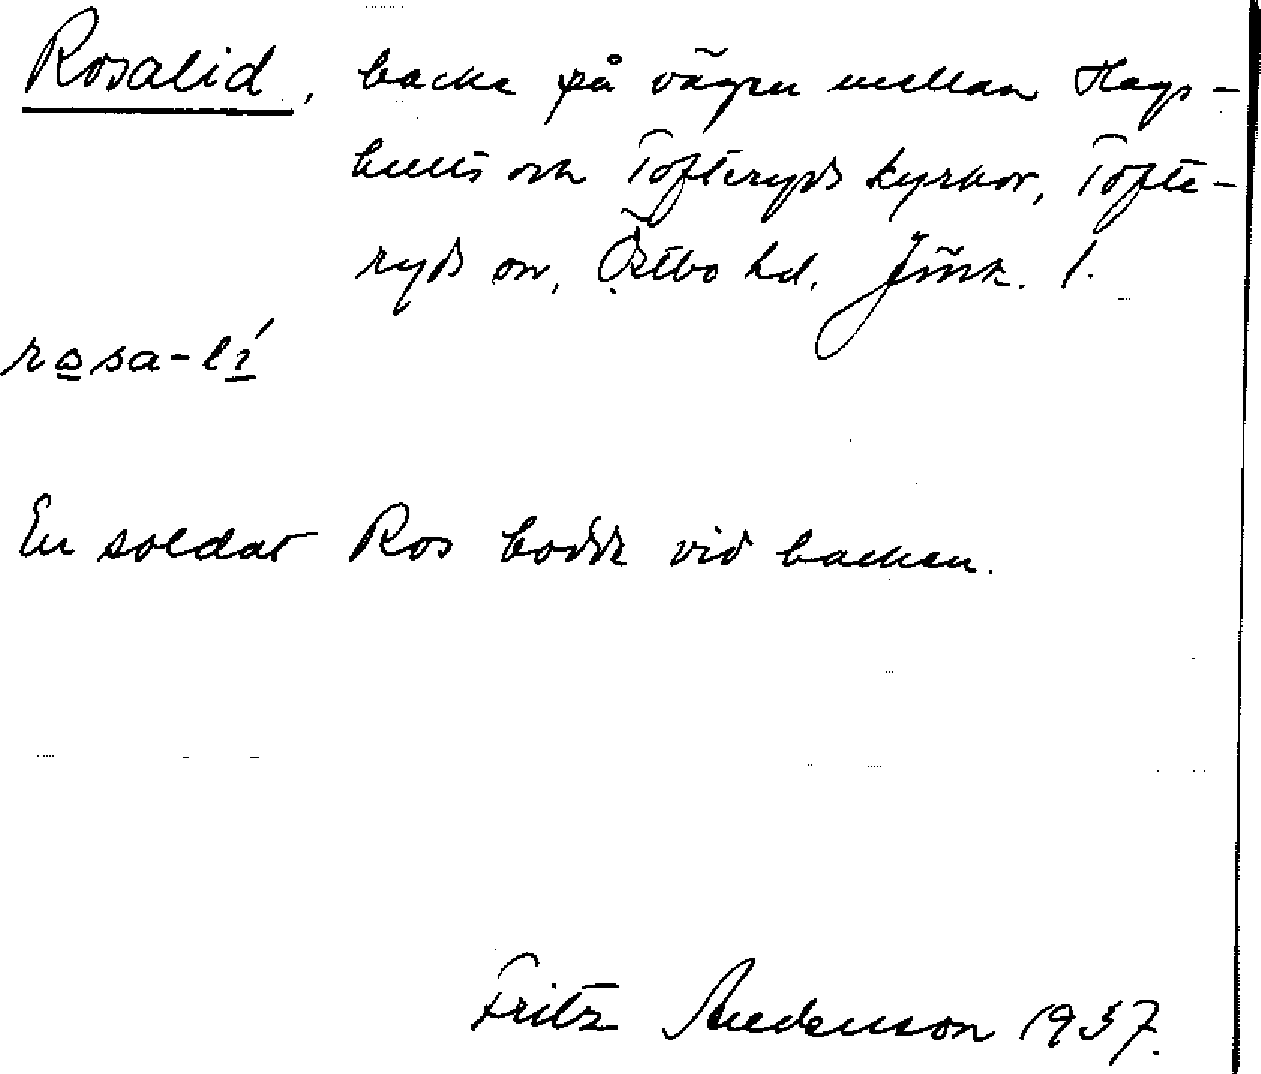 Rosalid, backe på vägen mellan Hags-
hults och Tofteryds kyrkor, Tofte-
ryds sn, Östbo hd. Jönk. l.
rosa-lí
En soldat Ros bodde vid backen.
Fritz Andersson 1937.